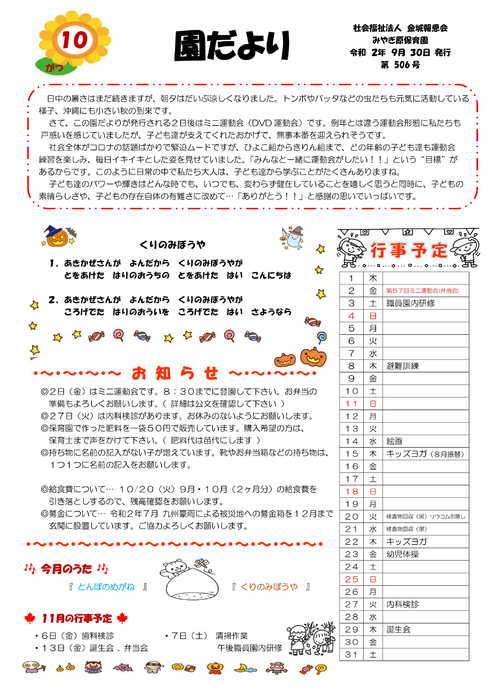 10
がつ
園だより
社会福祉法人 金城報恩会
みやぎ原保育園
令和 2年 9月 30日 発行
第 506号
日中の暑さはまだ続きますが、朝夕はだいぶ涼しくなりました。トンボやバッタなどの虫たちも元気に活動している
様子、沖縄にも小さい秋の到来です。
さて、この園だよりが発行される2日後はミニ運動会(DVD運動会)です。例年とは違う運動会形態に私たちも
戸惑いを感じていましたが、子ども達が支えてくれたおかげで、無事本番を迎えられそうです。
社会全体がコロナの話題ばかりで緊迫ムードですが、ひよこ組からきりん組まで、どの年齢の子ども達も運動会
練習を楽しみ、毎日イキイキとした姿を見せていました。「みんなと一緒に運動会がしたい!!」という“目標”が
あるからです。このように日常の中で私たち大人は、子ども達から学ぶことがたくさんありますね。
子ども達のパワーや輝きはどんな時でも、いつでも、変わらず健在していることを嬉しく思うと同時に、子どもの
素晴らしさや、子どもの存在自体の有難さに改めて…「ありがとう!!」と感謝の思いでいっぱいです。
くりのみぼうや
1. あきかぜさんが よんだから くりのみぼうやが
とをあけた はりのおうちの とをあけた はい こんにちは
2. あきかぜさんが よんだから くりのみぼうやが
ころげでた はりのおういを ころげでた はい さようなら
お知らせ
◎2日(金)はミニ運動会です。8:30までに登園して下さい。お弁当の
準備もよろしくお願いします。(詳細は公文を確認して下さい)
◎27日(火)は内科検診があります。お休みのないようにお願いします。
◎保育園で作った肥料を一袋50円で販売しています。購入希望の方は、
保育士まで声をかけて下さい。(肥料代は苗代にします)
◎持ち物に名前の記入がない子が増えています。靴やお弁当箱などの持ち物は、
1つ1つに名前の記入をお願いします。
◎給食費について… 10/20(火)9月・10月(2ヶ月分)の給食費を
引き落としするので、残高確認をお願いします。
◎募金について… 令和2年7月 九州豪雨による被災地への募金箱を12月まで
玄関に設置しています。ご協力よろしくお願いします。
今月のうた
『 とんぼのめがね 』
『 くりのみぼうや 』
11月の行事予定
・6日(金)歯科検診
・7日(土) 清掃作業
・13日(金)誕生会 . 弁当会
午後職員園内研修
行事予定
1 木
2 金 第57回ミニ運動会(弁当会)
3 土 職員園内研修
4 日
5 月
6 火
7 水
8 木 避難訓練
9 金
10 土
11 日
12 月
13 火
14 水 絵画
15 木 キッズヨガ(8月振替)
16 金
17 土
18 日
19 月
20 火
21 水
22 木 キッズヨガ
23 金 幼児体操
24 土
25 日
26 月
27 火 内科検診
28 水
29 木 誕生会
30 金
31 土